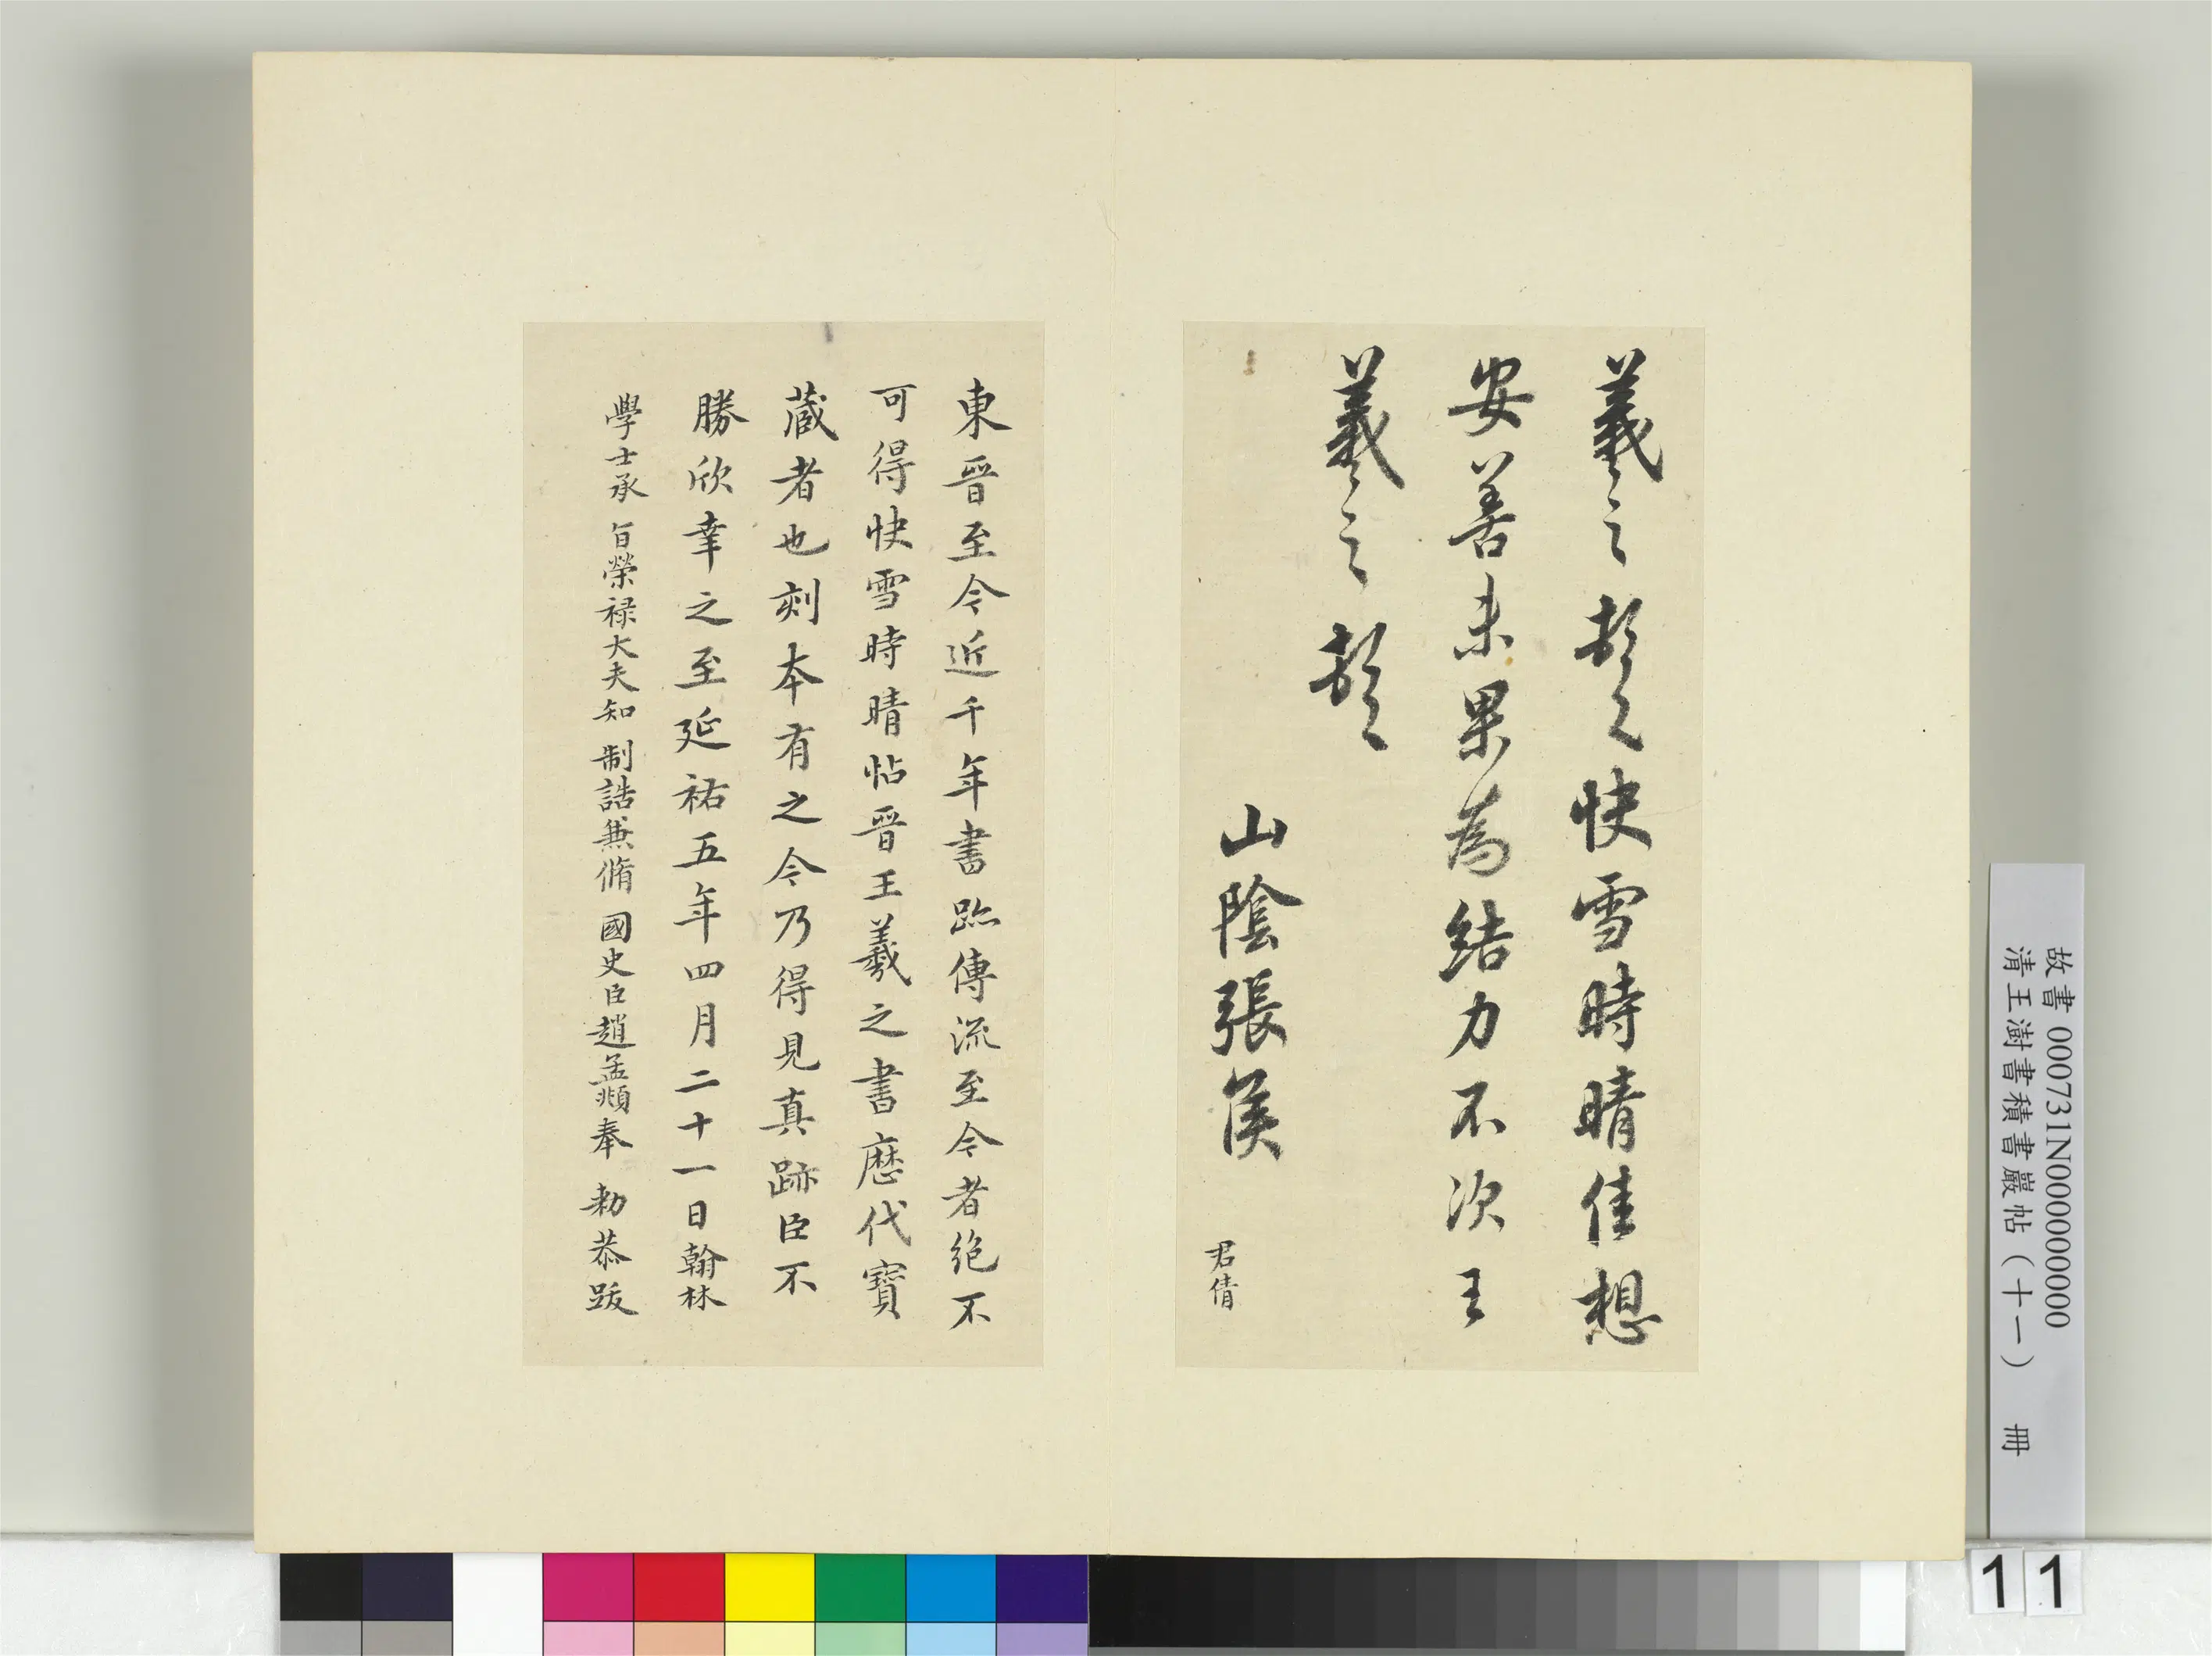 羲之頓首快雪時晴佳想
安善未果為結力不次王
羲之頓首
山陰張侯
君倩
東晉至今近千年書跡傳流至今者絶不
可得快雪時晴帖晉王羲之書歷代寶
藏者也刻本有之今乃得見真跡臣不
勝欣幸之至延祐五年四月二十一日翰林
學士承旨榮祿大夫知制誥兼脩國史臣趙孟頫奉勑恭跋
故書 000731N000000000
清王澍書積書巖帖(十一) 冊
11